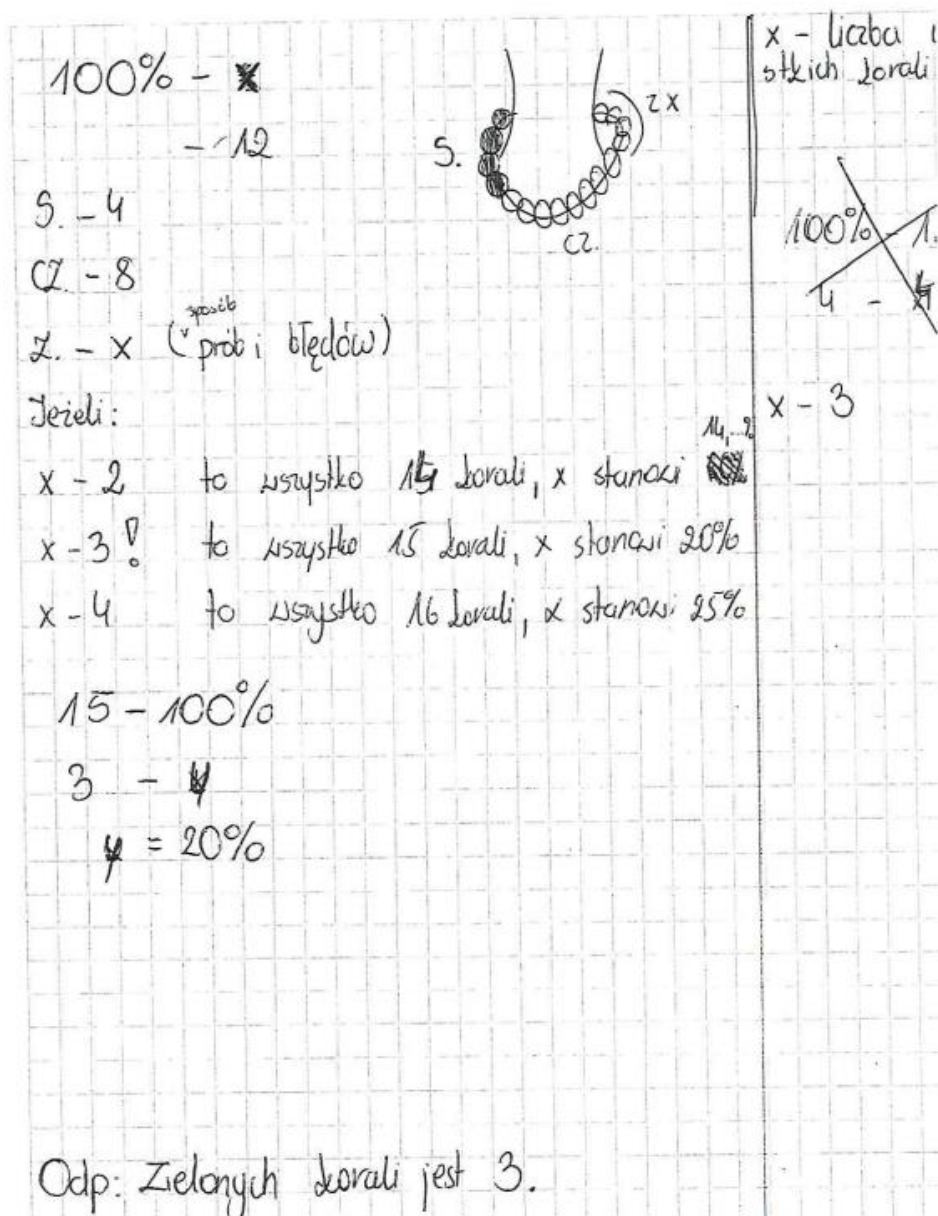 100% -
- 12
S. - 4
CZ. - 8
Z. - x (sposób prób i błędów)
S.
ZX
CZ.
Jeżeli:
x - 2 to wszystko 14 korali, x stanowi 14,..%
x - 3! to wszystko 15 korali, x stanowi 20%
x - 4 to wszystko 16 korali, x stanowi 25%
15 - 100%
3 - y
y = 20%
Odp: Zielonych korali jest 3.
x - liczba
stkich korali
100% - 1
4 -
x - 3